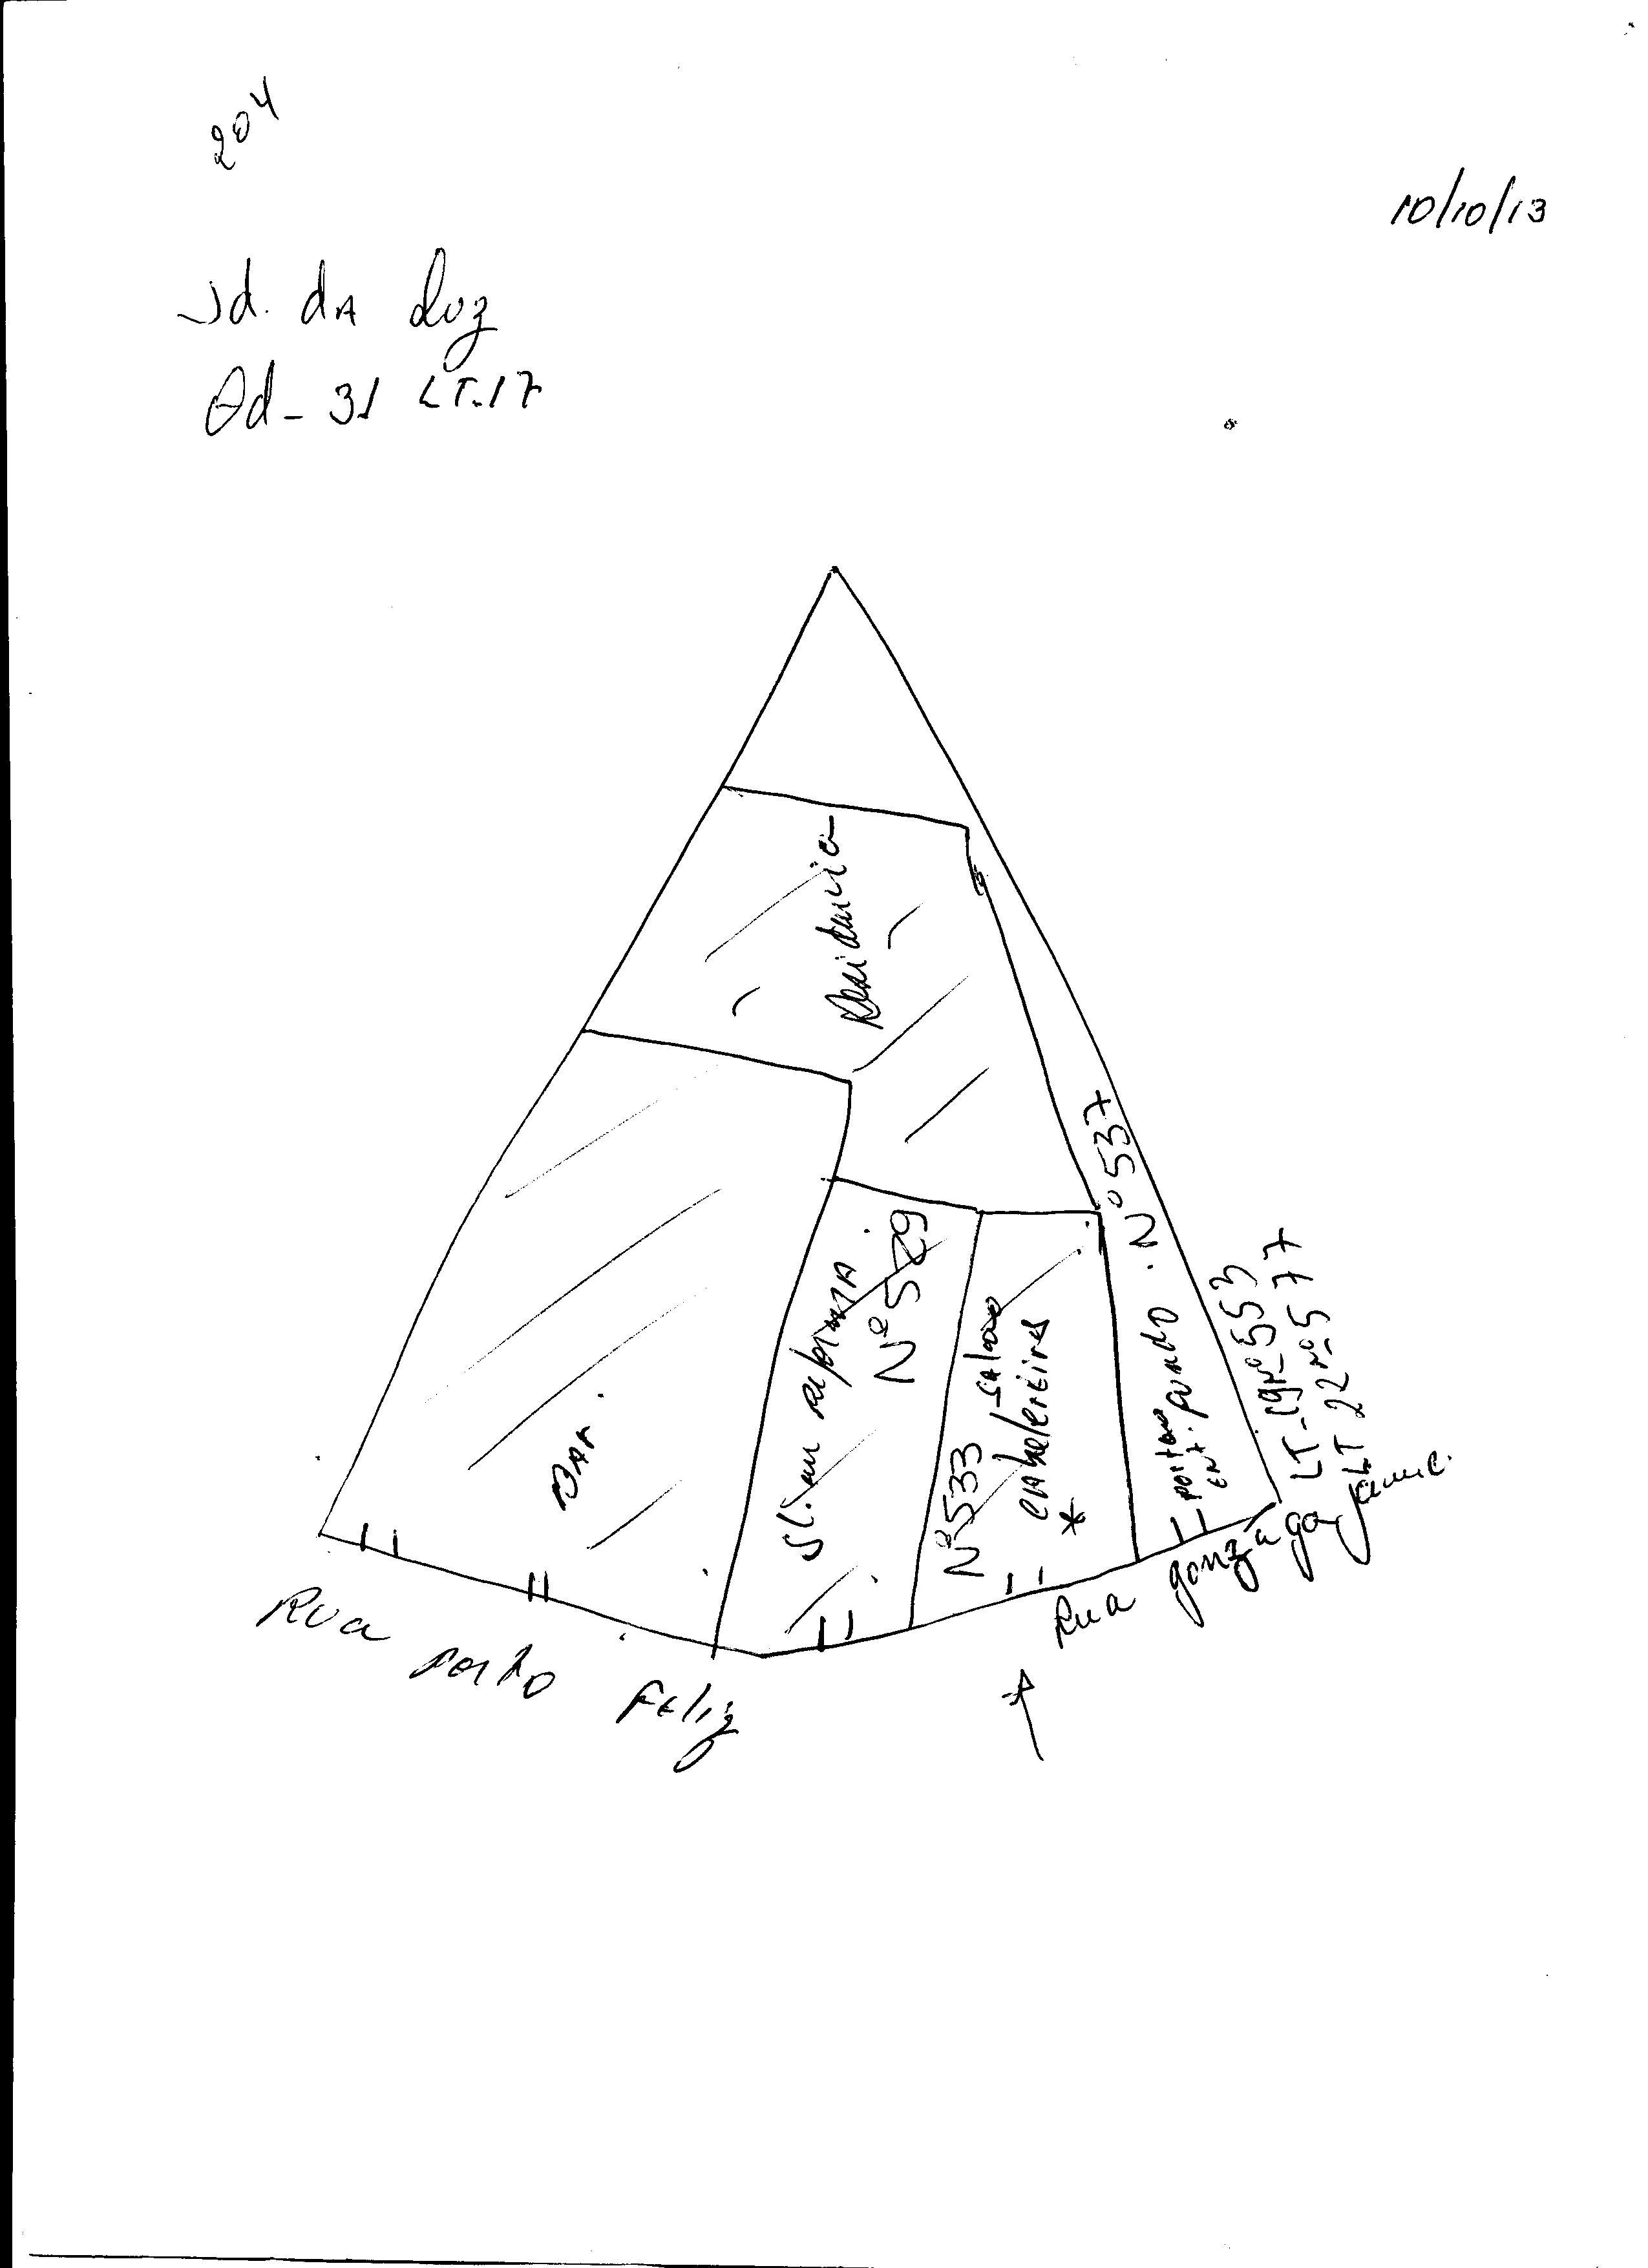 204
10/10/13
Jd. da Luz
Qd - 31 LT-17
Residencia
Nº 537
Bar.
Sl. em reforma
Nº 529
Nº 533 - salao
cabelereiros
*
portao
ent. fundo.
LT-19 Nº 553
LT 22 Nº 577
Rua Porto Feliz
Rua gonzaga